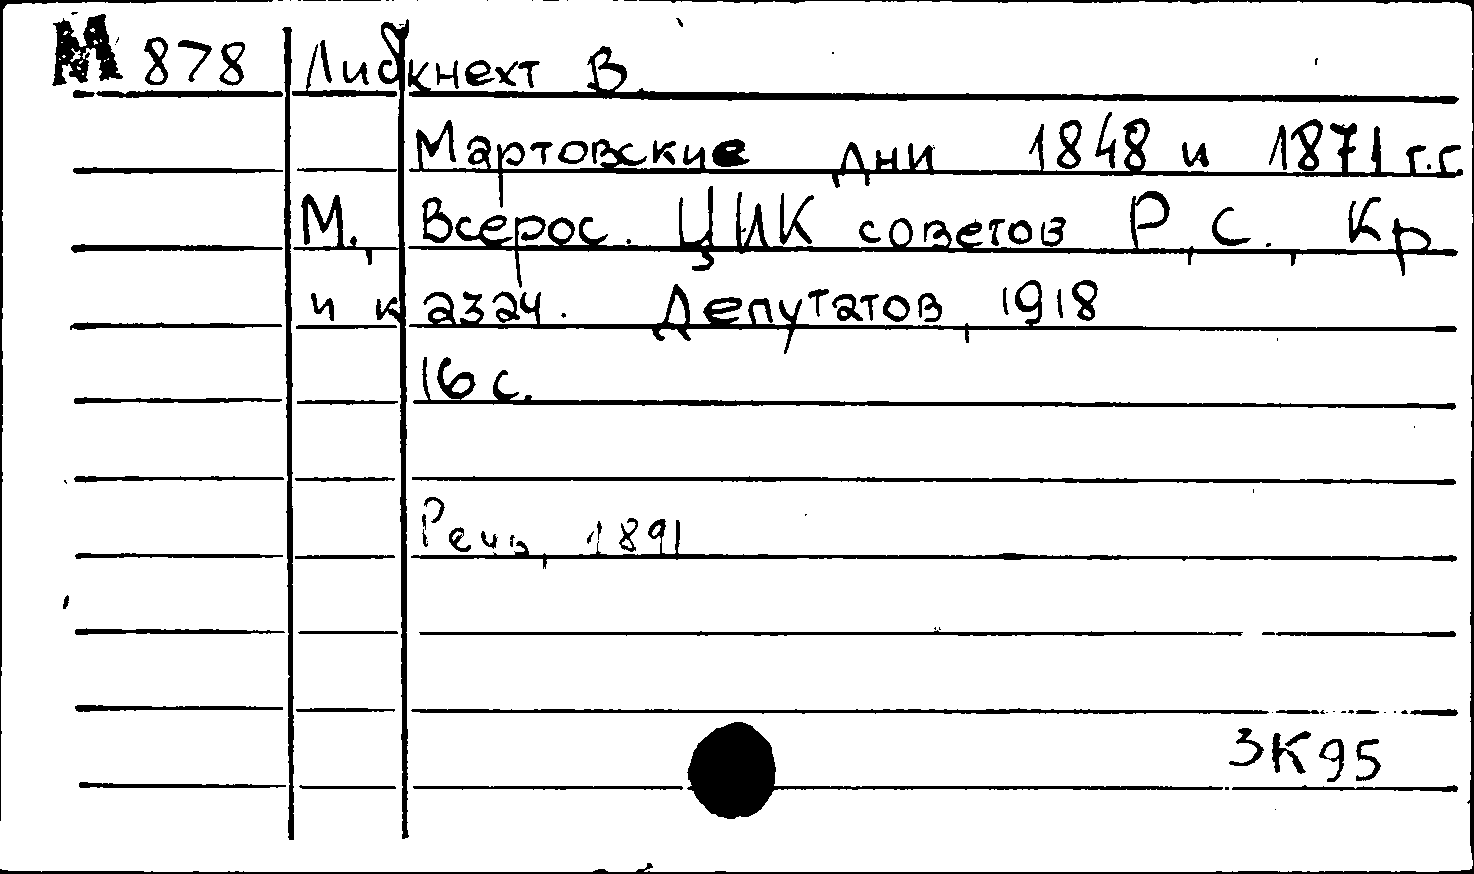 М 878 Либкнехт В.
Мартовские дни 1848 и 1871 г.г.
М., Всерос. ЦИК советов Р, С., Кр
и казач. Депутатов, 1918
16 с.
Речь, 1891
3К95